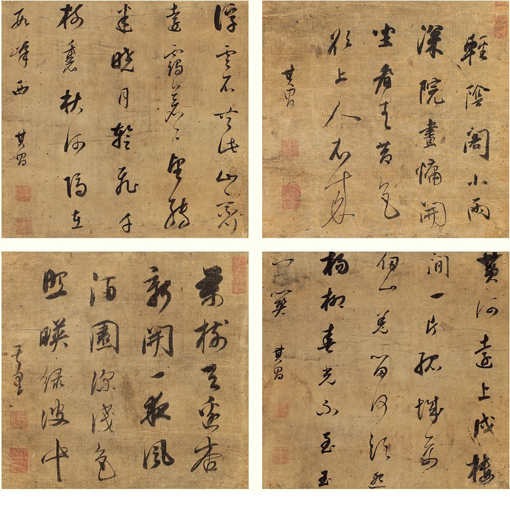 浮雲不共此山齊
遠靄蒼蒼望轉
迷曉月暫飛千
樹裏秋河隔在
數峰西 其昌
輕陰閣小雨
深院晝慵開
坐看蒼苔色
欲上人衣來
其昌
萬樹江邊杏
新開一夜風
滿園深淺色
照暎綠波中
其昌
黃河遠上戍樓
間一片孤城萬
仞山羌笛何須怨
楊柳春光不至玉
門關 其昌